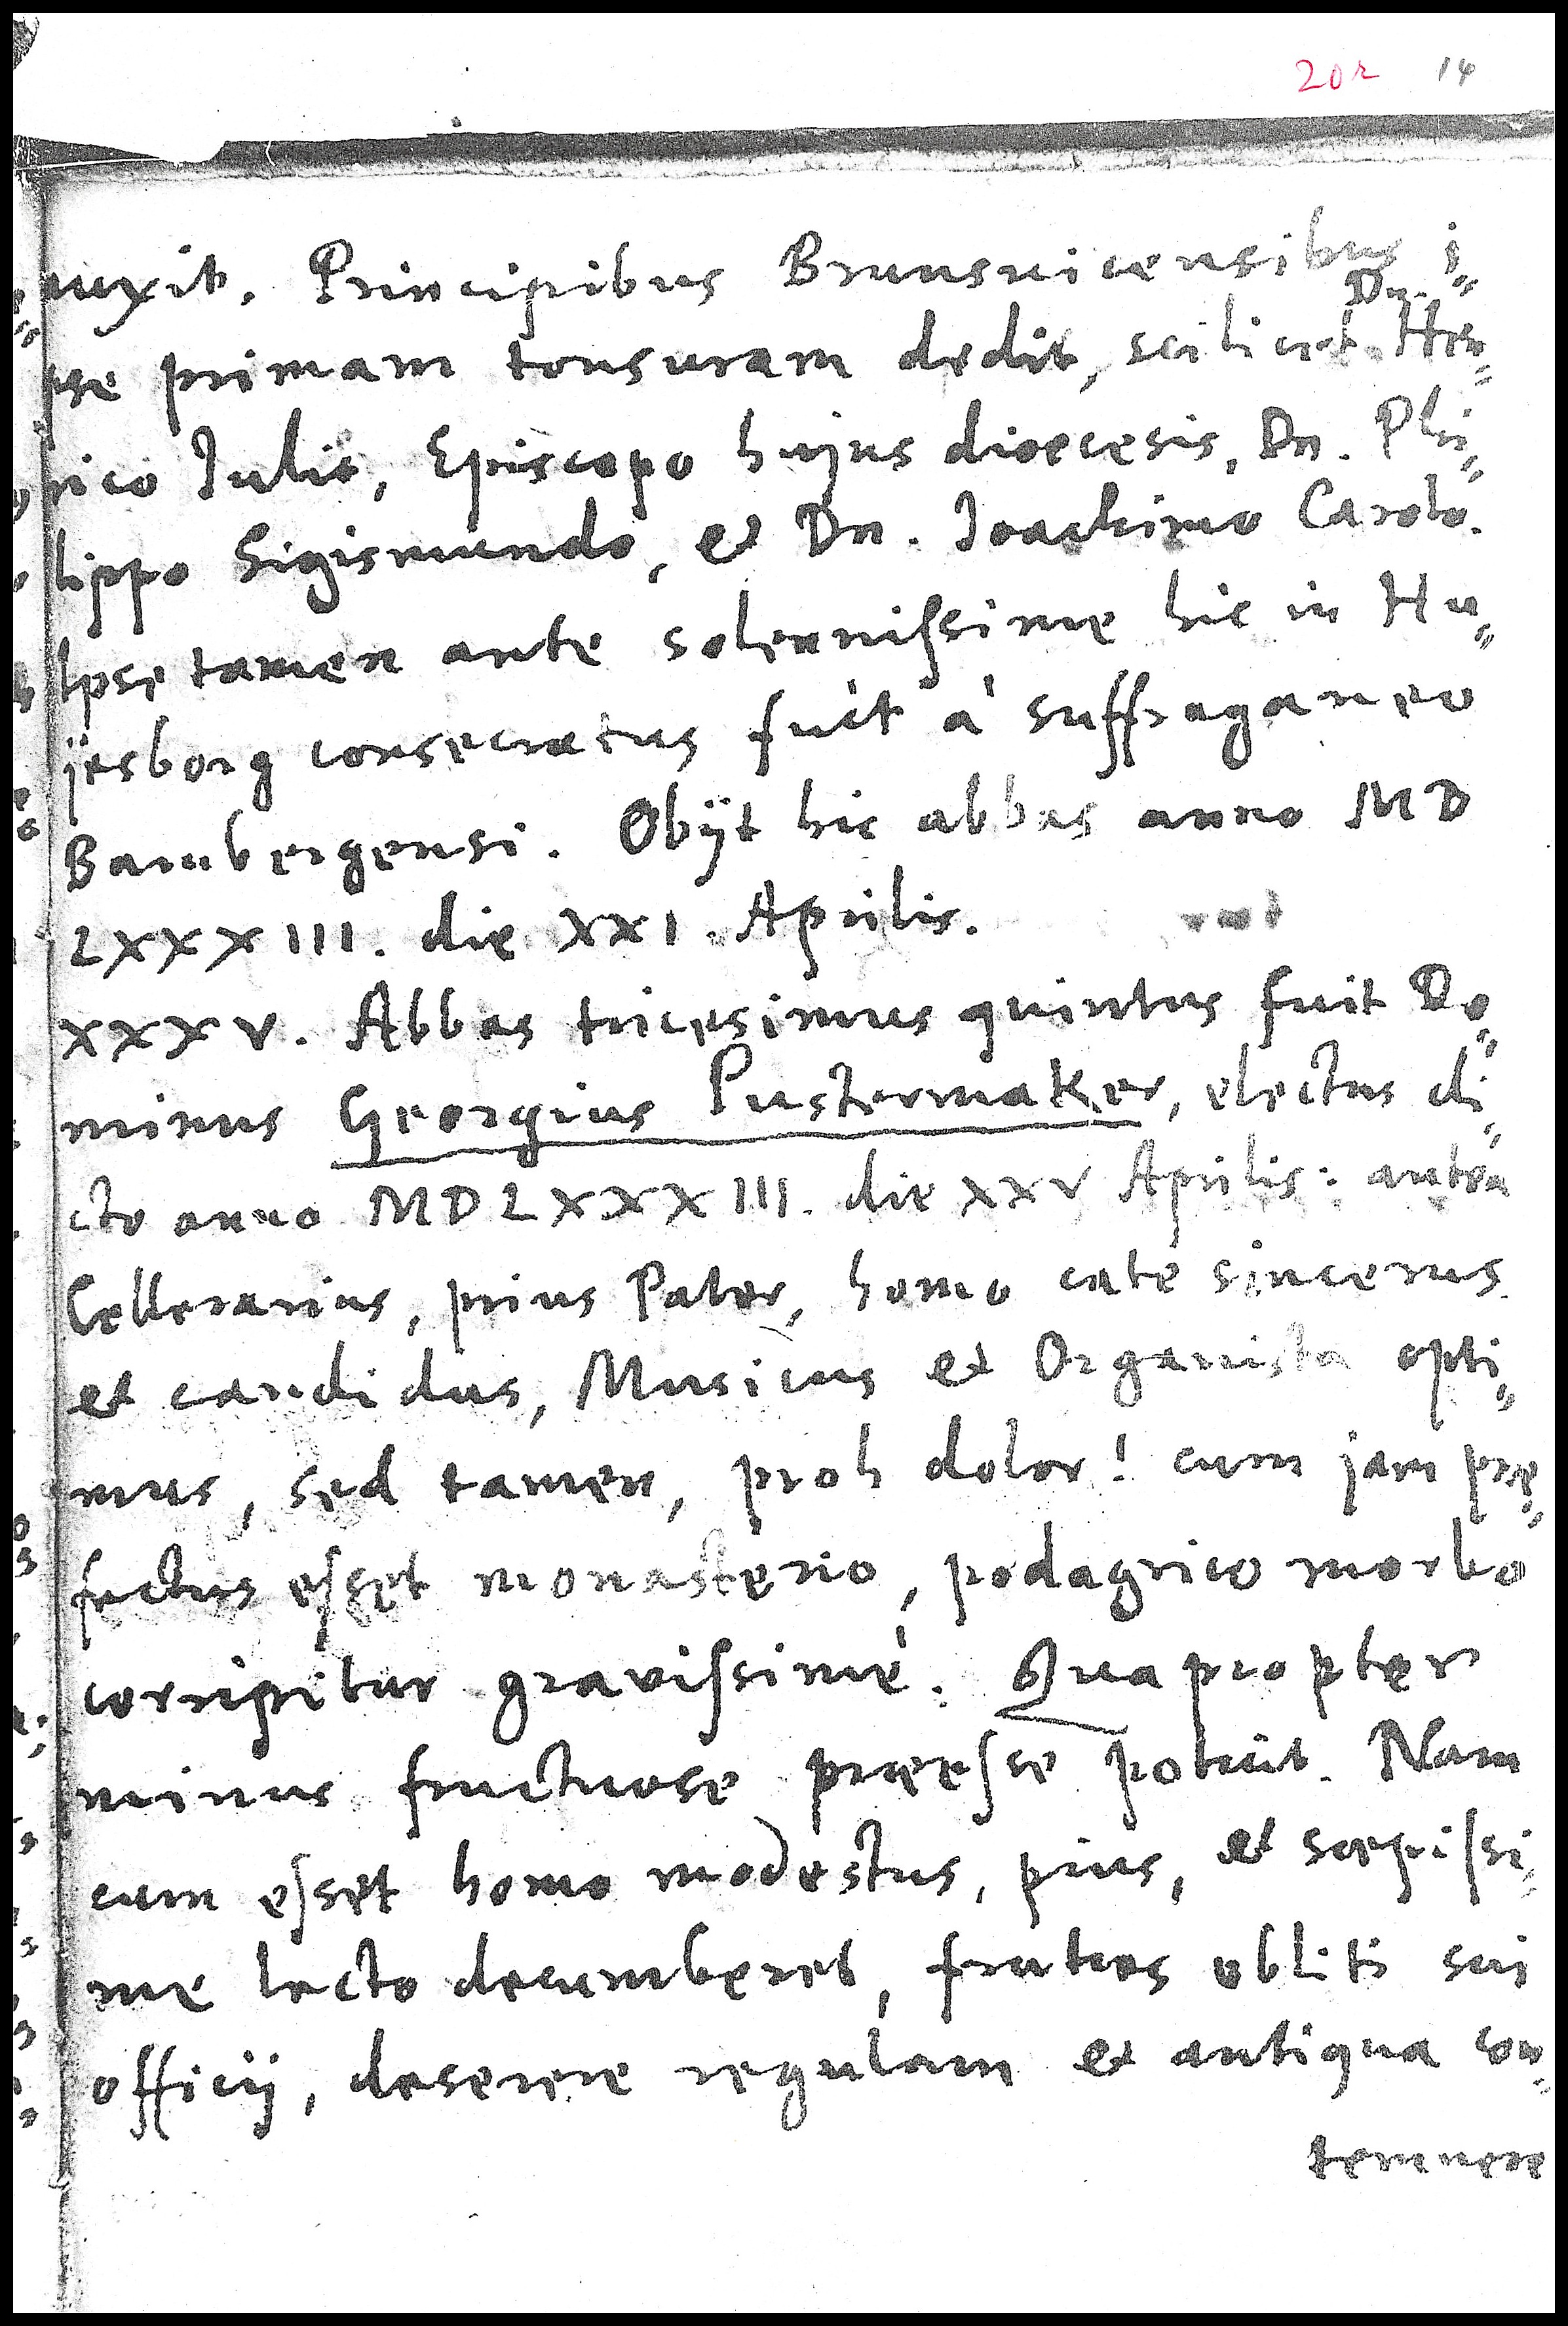 20r 14
auxit. Principibus Brunsuicensibus i=
pse primam tonsuram dedit, scilicet Dn. Hen=
rico Julio, Episcopo hujus dioecesis, Dn. Phi=
lippo Sigismundo, et Dn. Joachimo Carolo.
Ipse tamen ante solenniſsime hic in Hu=
ijesborg consecratus fuit à suffraganeo
Bambergensi. Obijt hic abbas anno MD
LXXXIII. die XXI. Aprilis.
XXXV. Abbas tricesimus quintus fuit Do=
minus Georgius Pustermaker, electus di=
cto anno MDLXXXIII. die XXV Aprilis: antea
Cellerarius, prius Pater, homo cate sincerus
et candidus, Musicus et Organista opti=
mus, sed tamen, proh dolor! cum jam præ=
fectus eſset monasterio, podagrico morbo
corripitur graviſsimè. Quapropter
minus fructuose præeſse potuit. Nam
cum eſset homo modestus, pius, et sæpiſsi=
me lecto decumberet, fratres obliti sui
officij, deserere regulam et antiqua con=
temnere